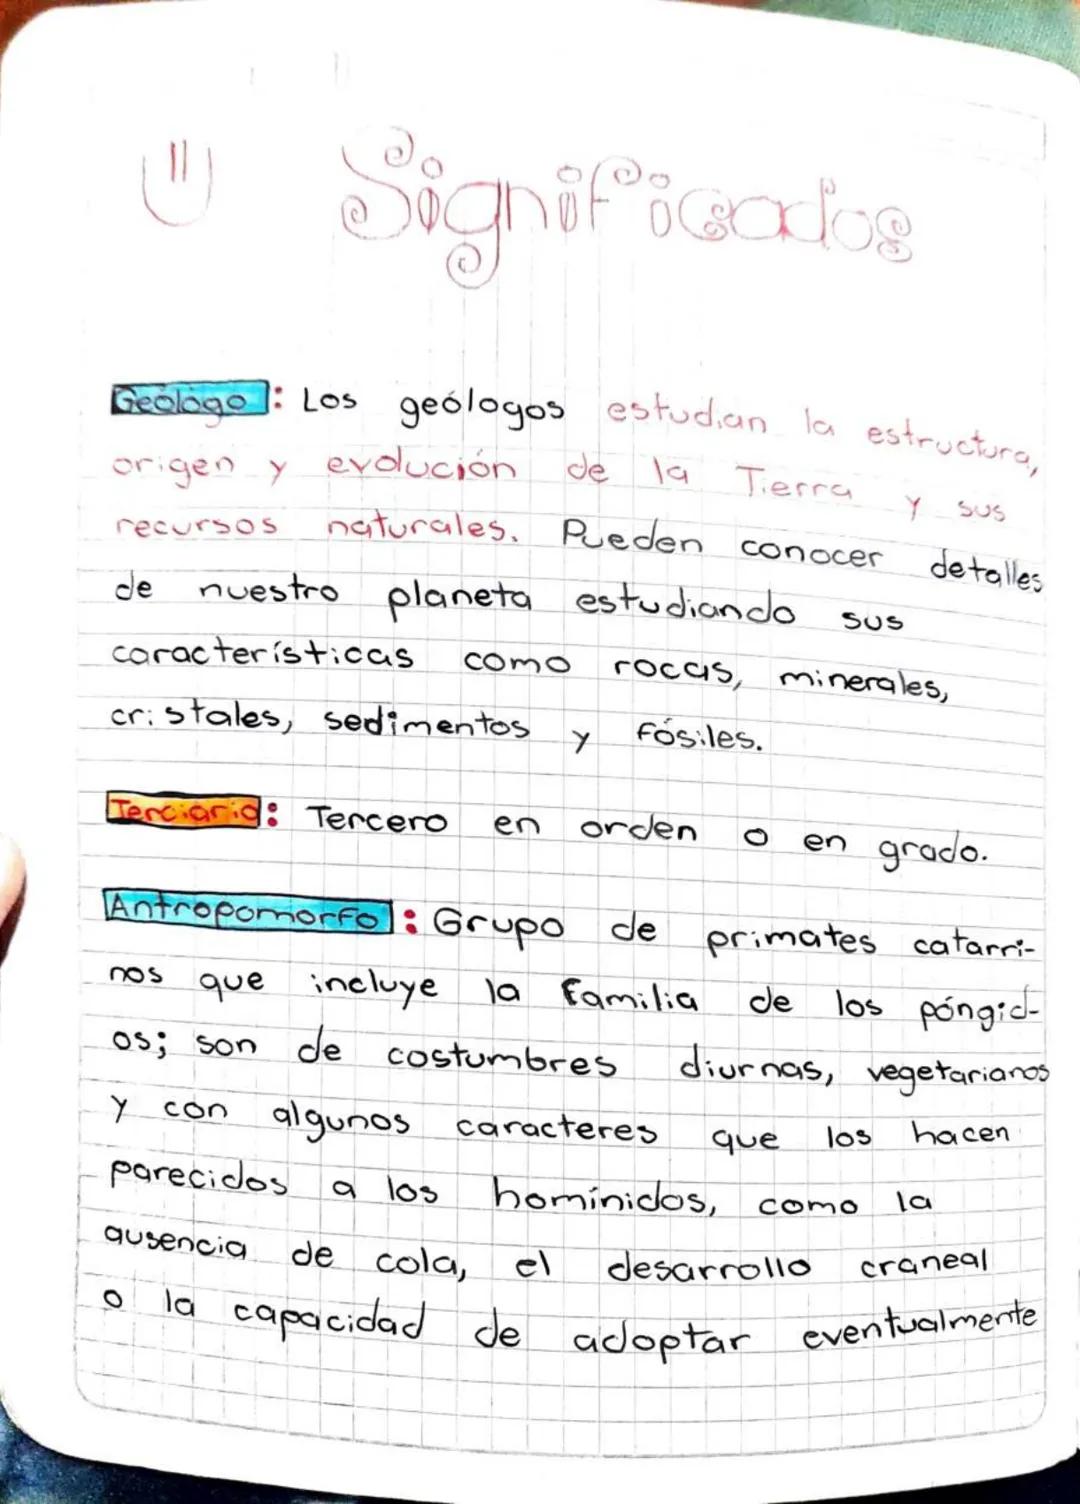 Significados
Geólogo: Los geólogos estudian la estructura,
origen y evolución de la Tierra y sus
recursos naturales. Pueden conocer detalles
de nuestro planeta estudiando sus
características como rocas, minerales,
cristales, sedimentos y fósiles.
Terciario: Tercero en orden o en grado.
Antropomorfo: Grupo de primates catarri-
nos que incluye la familia de los póngid-
os; son de costumbres diurnas, vegetarianos
y con algunos caracteres que los hacen
parecidos a los homínidos, como la
ausencia de cola, el desarrollo craneal
o la capacidad de adoptar eventualmente